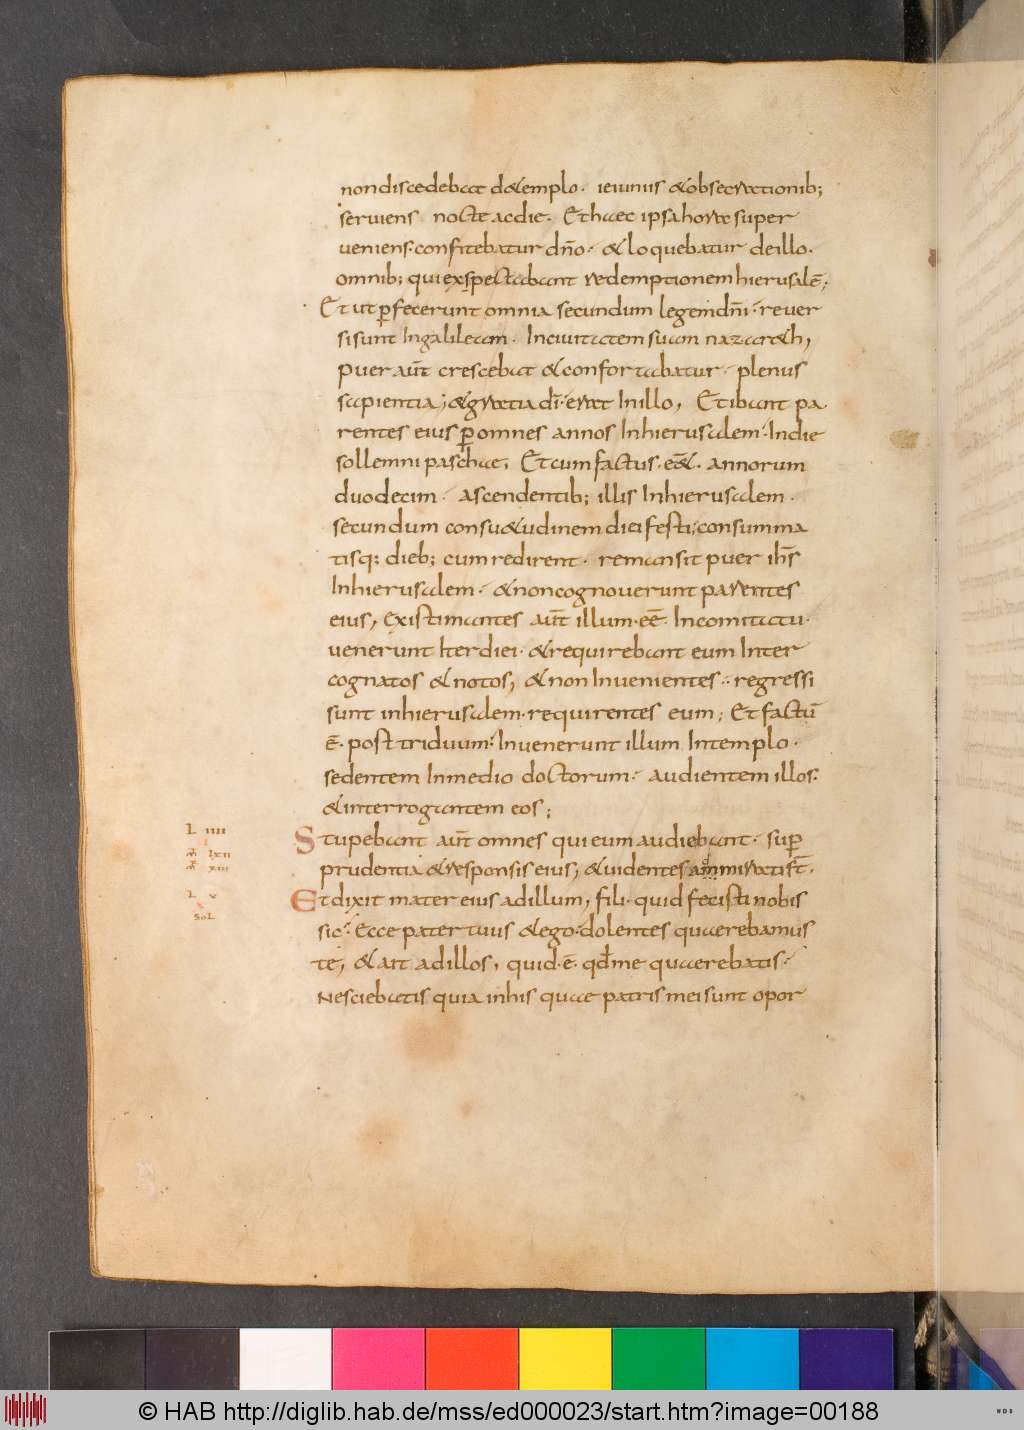 non discedebat d&emplo · ieiuniis & obsecrationib;
serviens nocte ac die · Et haec ipsa hora super
veniens · confitebatur dño · & loquebatur de illo ·
omnib; qui exspectabant redemptionem hierusalē;
Et ut pfecerunt omnia secundum legem dñi · rever
si sunt In galileam · In civitatem suam nazar&h,
Puer aūt crescebat & confortabatur · plenus
sapientia; & gratia dī · erat In illo, Et ibant pa
rentes eius p omnes annos In hierusalem · In die
sollemni paschae, Et cum factus · ēē& · annorum
duodecim · ascendentib; illis In hierusalem ·
secundum consu&udinem diei festi; consumma
tisq: dieb; cum redirent · remansit puer ihs
In hierusalem · & non cognoverunt parentes
eius, existimantes aūt illum · eē · In comitatu ·
venerunt Iter diei · & requirebant eum Inter
cognatos & notos, & non Invenientes · regressi
sunt in hierusalem · requirentes eum; Et factū
ē · post triduum · Invenerunt illum In templo ·
sedentem In medio doctorum · audientem illos ·
& interrogantem eos;
L IIII
Stupebant aūt omnes qui eum audiebant · sup
lxii
xiii
prudentia & responsis eius, & videntes ammirati st̄ ·
L v
Et dixit mater eius ad illum, fili · quid fecisti nobis
SoL
sic · Ecce pater tuus & ego · dolentes quaerebamus
te, & ait ad illos, quid · ē · qd me quaerebatis ·
Nesciebatis quia in his quae patris mei sunt opor
© HAB http://diglib.hab.de/mss/ed000023/start.htm?image=00188